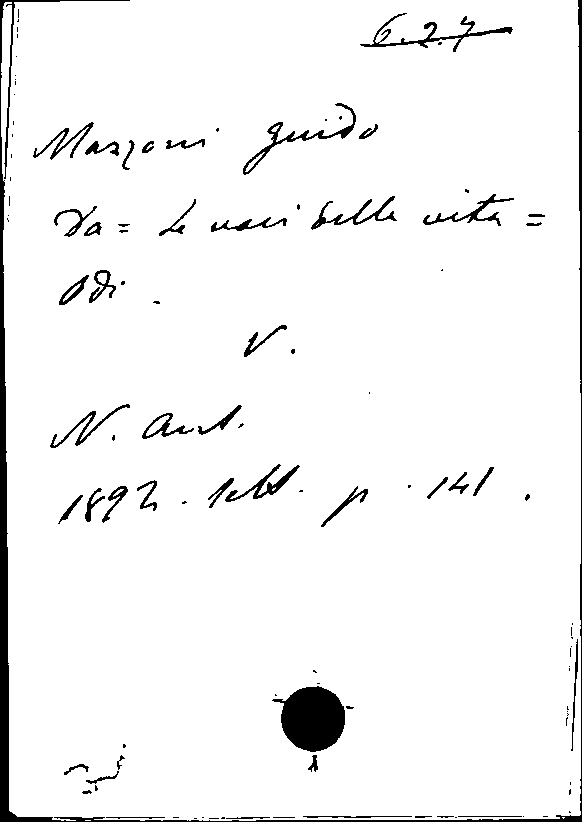 6.2.7
Mazzoni Guido
Da = Le voci della vita =
Odi.
V.
N. Ant.
1892. sett. p. 141.